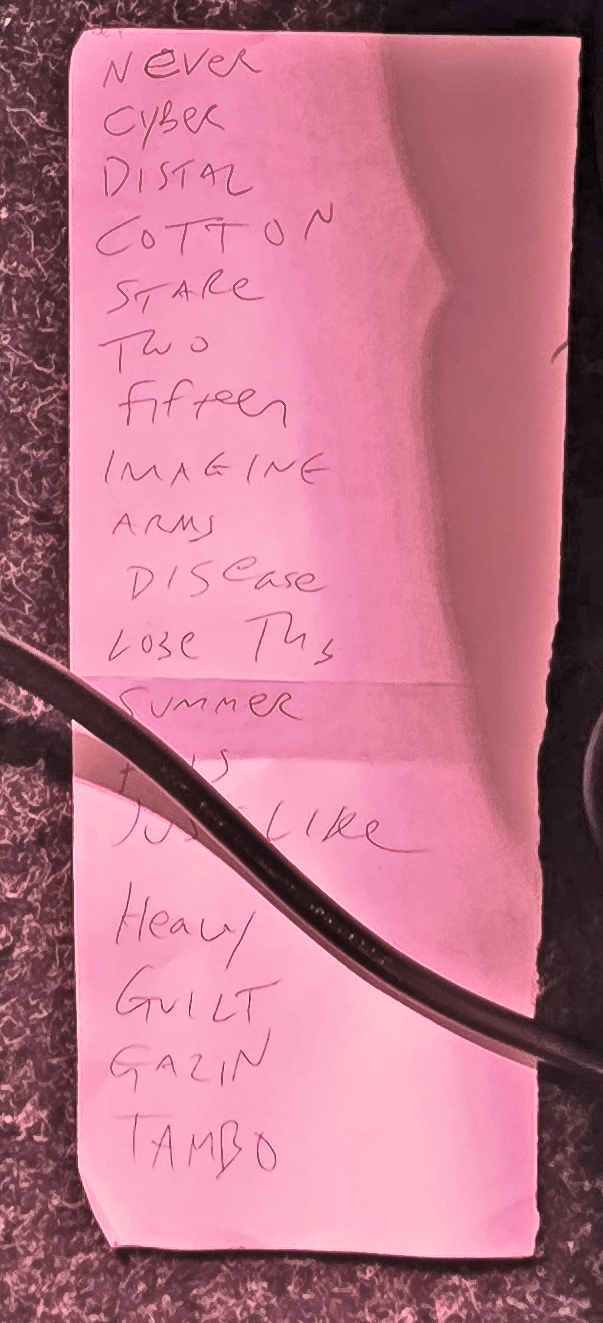 NEVER
CYBER
DISTAL
COTTON
STARE
TWO
fifteen
IMAGINE
ARMS
DISease
LOSE THIS
SUMMER
JUST LIKE
Heavy
GUILT
GAZIN
TAMBO